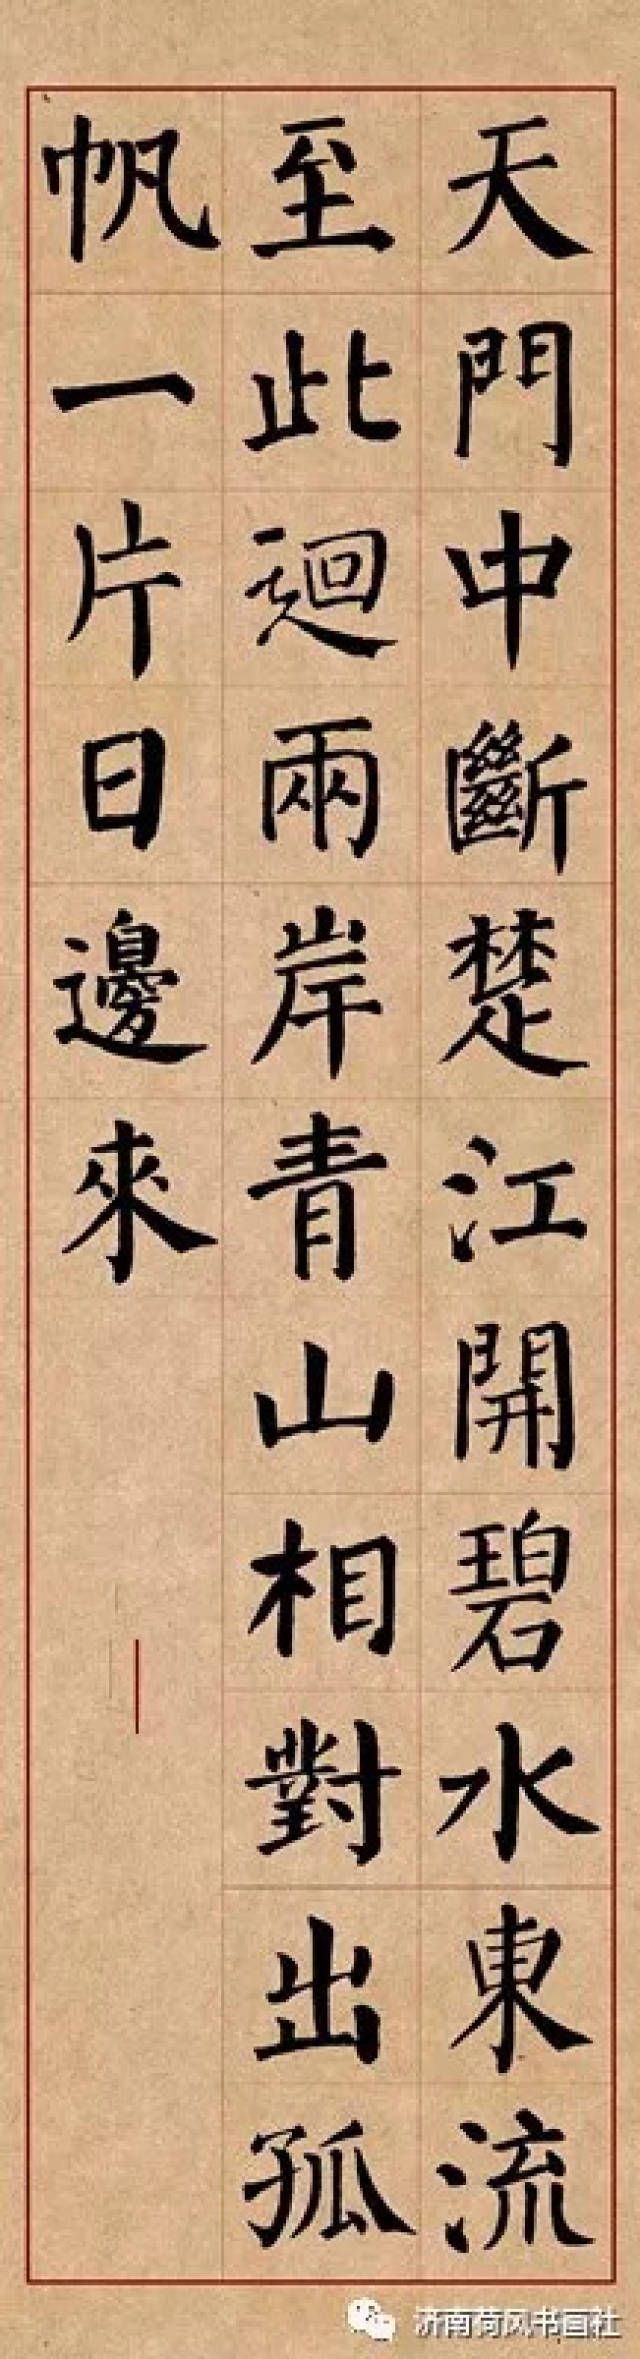 天門中斷楚江開碧水東流
至此迴兩岸青山相對出孤
帆一片日邊來
济南荷风书画社